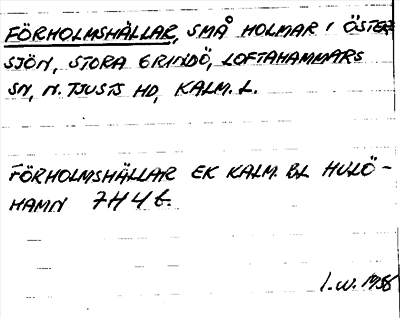 FÖRHOLMSHÄLLAR, SMÅ HOLMAR I ÖSTER
SJÖN, STORA GRINDÖ, LOFTAHAMMARS
SN, N. TJUSTS HD, KALM. L.
FÖRHOLMSHÄLLAR EK KALM. BL HULÖ-
HAMN 7H4b.
I.W. 1958